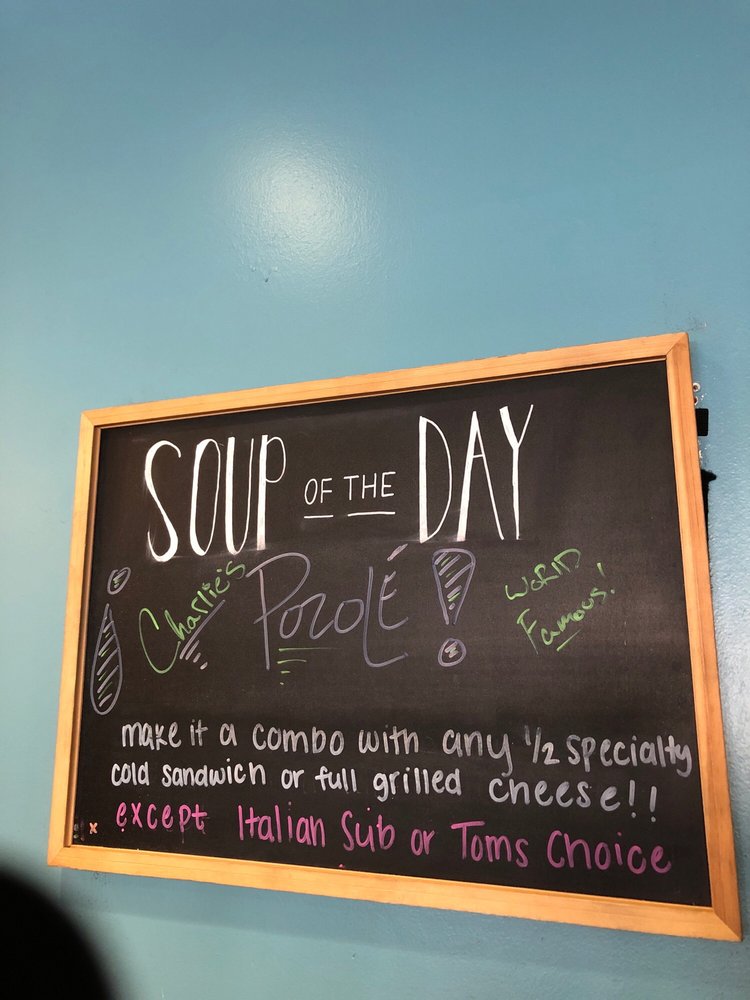 SOUP OF THE DAY
¡ Charlie's Pozolé! WORLD Famous!
make it a combo with any 1/2 specialty
cold sandwich or full grilled cheese!!
except Italian Sub or Toms Choice